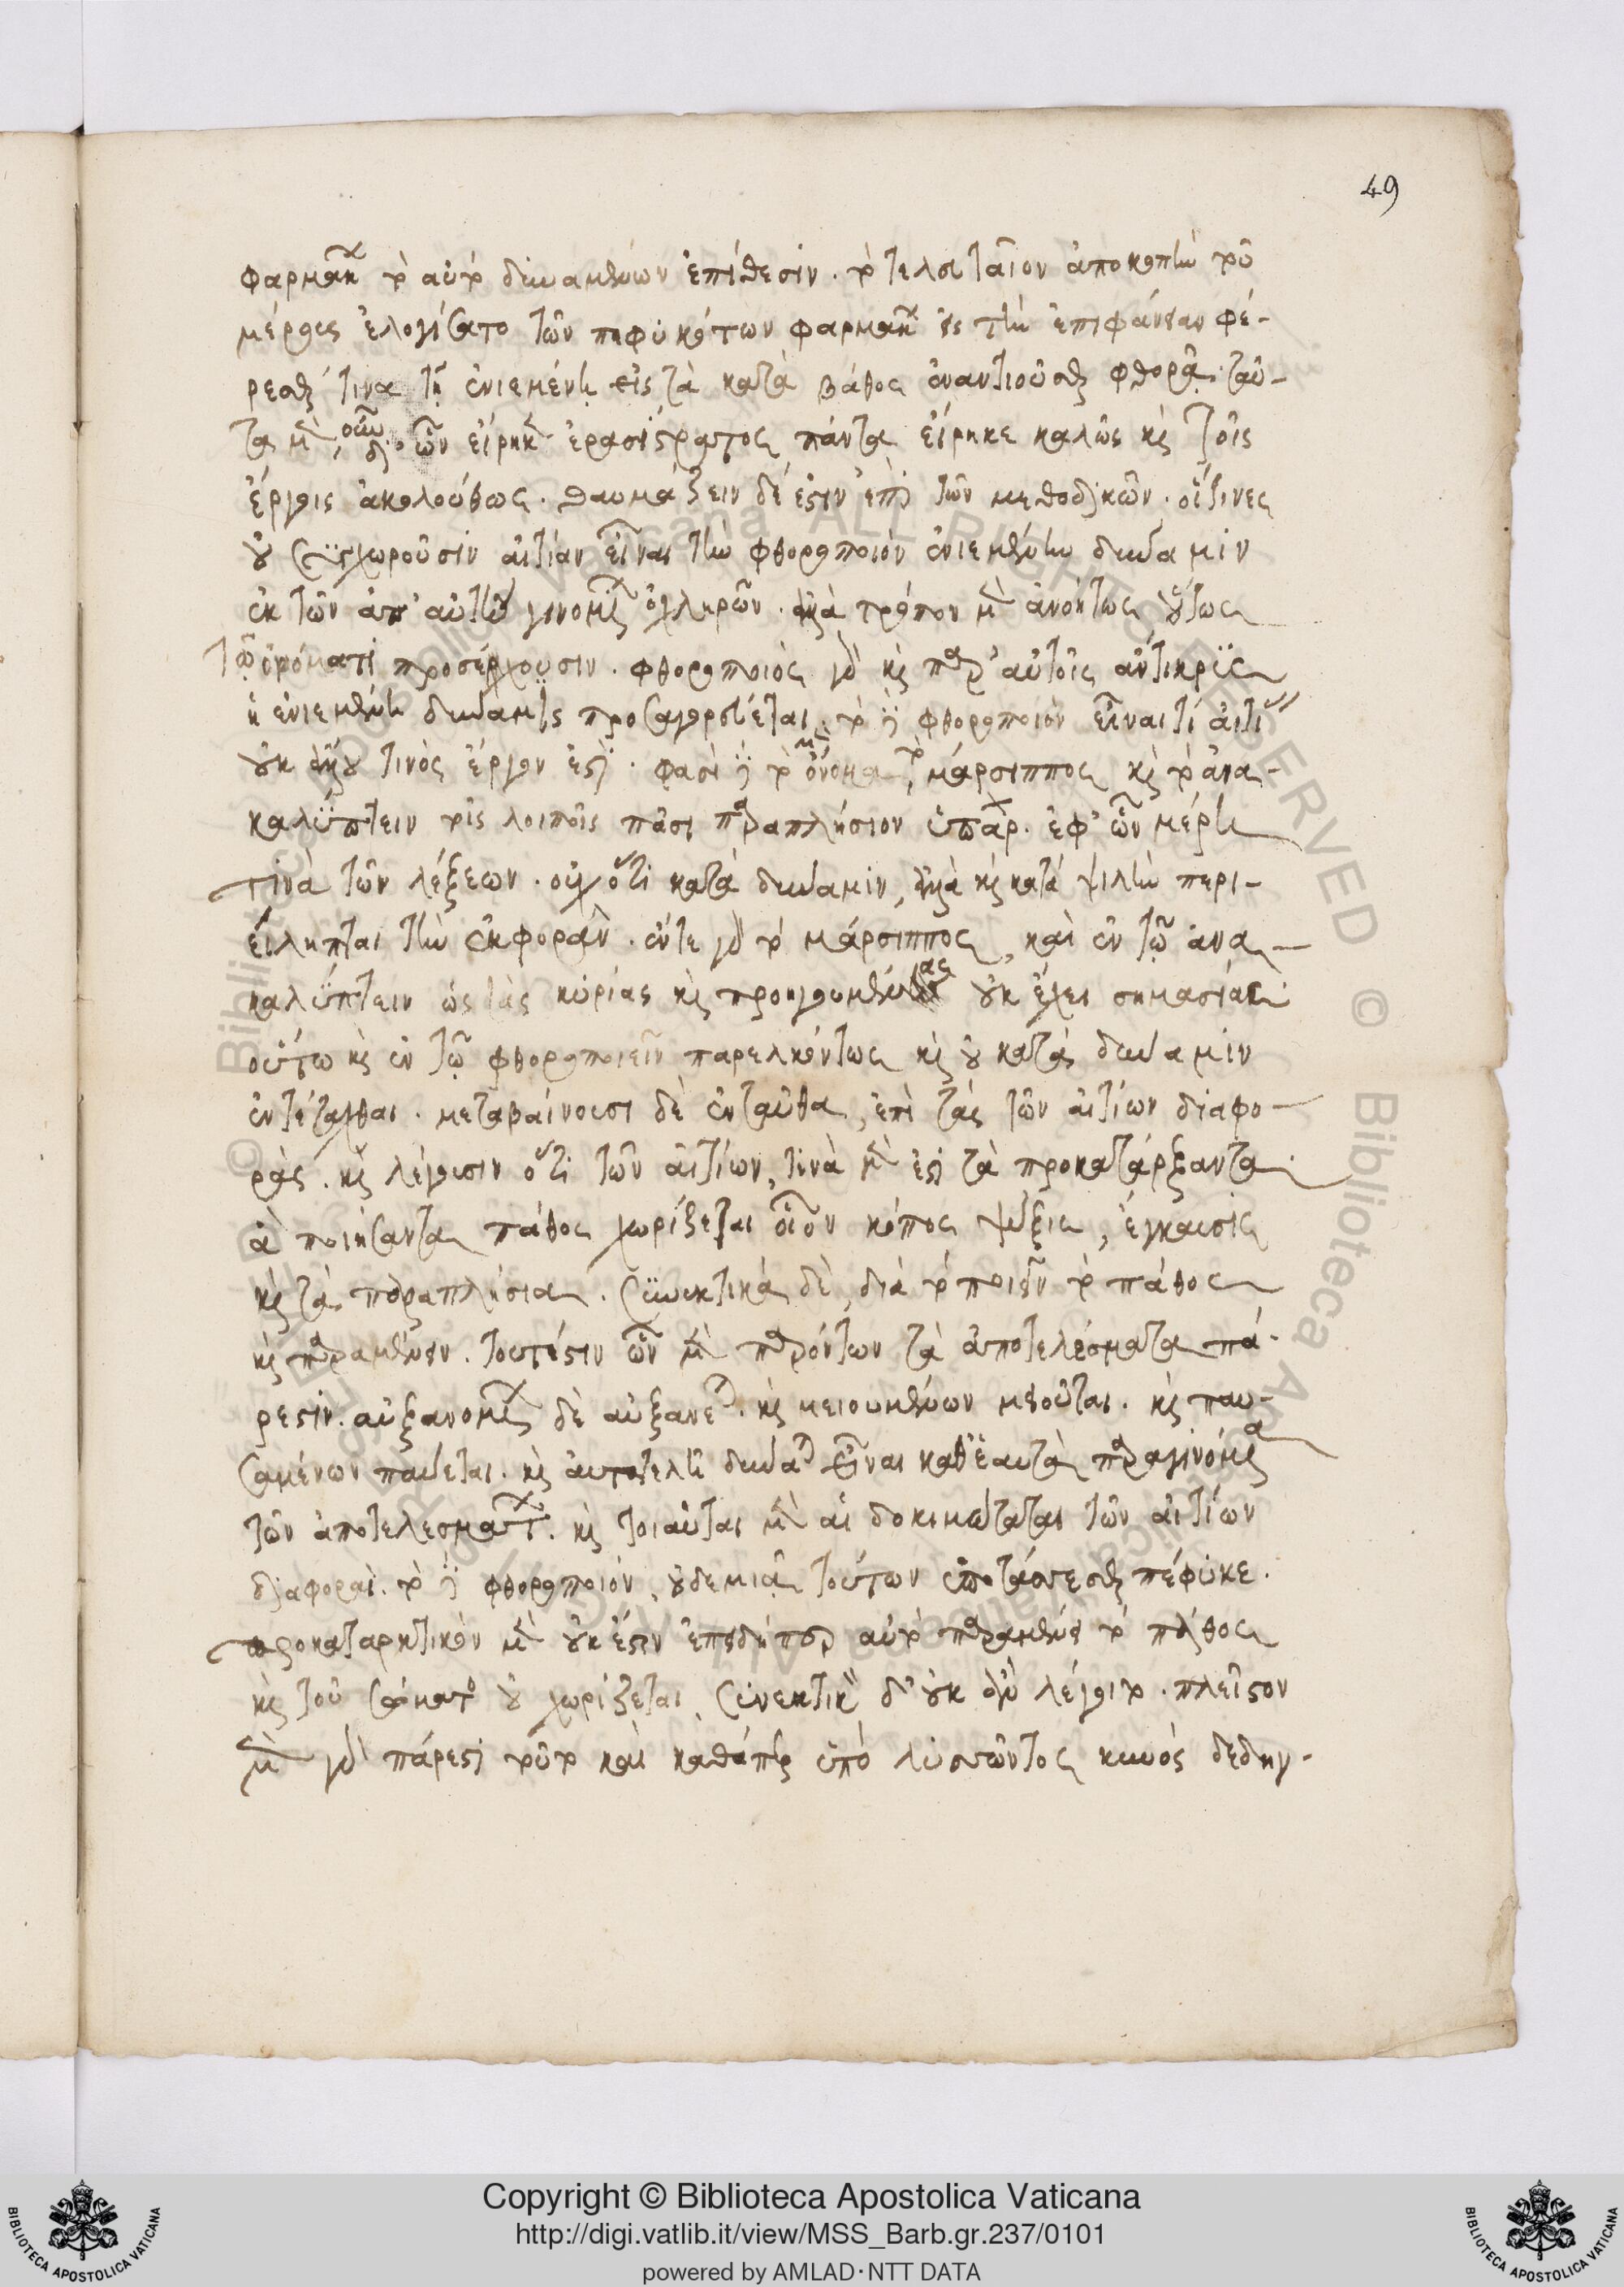 49
φαρμάκων τὸ αὐτὸ δυναμένων ἐπίθεσιν. τὸ τελευταῖον ἀποκοπὴν τοῦ
μέρους ἐλογίσατο τῶν πεφυκότων φαρμάκων εἰς τὴν ἐπιφάνειαν φέ-
ρεσθαί τινα τῇ ἐνιεμένῃ εἰς τὰ κατὰ βάθος ἐναντιοῦσθαι φθορᾷ. ταῦ-
τα μὲν οὖν δι' ὧν εἴρηκεν ἐρασίστρατος πάντα εἴρηκε καλῶς καὶ τοῖς
ἔργοις ἀκολούθως. θαυμάζειν δέ ἐστιν ἐπὶ τῶν μεθοδικῶν. οἵτινες
οὐ συγχωροῦσιν αἰτίαν εἶναι τὴν φθοροποιὸν ἐνιεμένην δύναμιν
ἐκ τῶν ἀπ' αὐτῆς γινομένων ὀχληρῶν. ἀλλὰ τρόπον μὲν ἀνοήτως οὕτως
τῷ ὀνόματι προσέρχουσιν. φθοροποιὸς γὰρ καὶ παρ' αὐτοῖς ἄντικρυς
ἡ ἐνιεμένη δύναμις προσαγορεύεται. τὸ δὲ φθοροποιὸν εἶναι τί αἰτι
οὐκ ἄλλου τινὸς ἔργον ἐστί. φασὶ δὲ τὸ ὄνομα τὸ μάρσιππος καὶ τὸ ἀνα-
καλύπτειν τοῖς λοιποῖς πᾶσι παραπλήσιον ὑπάρχειν. ἐφ' ὧν μέρη
τινὰ τῶν λέξεων. οὐχ ὅτι κατὰ δύναμιν, ἀλλὰ καὶ κατὰ ψιλὴν περι-
είληπται τὴν ἐκφοράν. οὔτε γὰρ τὸ μάρσιππος, καὶ ἐν τῷ ἀνα-
καλύπτειν ὡς τὰς κυρίας καὶ προηγουμένας οὐκ ἔχει σημασίας
οὕτω καὶ ἐν τῷ φθοροποιεῖν παρελκόντως καὶ οὐ κατὰ δύναμιν
ἐντετάχθαι. μεταβαίνουσι δὲ ἐνταῦθα, ἐπὶ τὰς τῶν αἰτίων διαφο-
ράς. καὶ λέγουσιν ὅτι τῶν αἰτίων, τινὰ μὲν ἐστὶ τὰ προκατάρξαντα
ἃ ποιήσαντα πάθος χωρίζεται οἷον κόπος ψύξις, ἔγκαυσις
καὶ τὰ παραπλήσια. συνεκτικὰ δὲ, διὰ τὸ ποιεῖν τὸ πάθος
καὶ παραμένειν. τουτέστιν ὧν μὲν παρόντων τὰ ἀποτελέσματα πά-
ρεστιν. αὐξανομένων δὲ αὐξάνεται. καὶ μειουμένων μειοῦται. καὶ παυ-
σαμένων παύεται. καὶ αὐτοτελῆ δύναται εἶναι καθ' ἑαυτὰ παραγινόμενα
τῶν ἀποτελεσμάτων. καὶ τοιαῦται μὲν αἱ δοκιμώταται τῶν αἰτίων
διαφοραί. τὸ δὲ φθοροποιόν, οὐδεμιᾷ τούτων ὑποτάσσεσθαι πέφυκε.
προκαταρκτικὸν μὲν οὐκ ἔστιν ἐπειδήπερ αὐτὸ παραμένει τὸ πλῆθος
καὶ τοῦ σώματος οὐ χωρίζεται, συνεκτικὴν δ' οὐκ ἂν λέγοιτο. πλεῖστον
μὲν γὰρ πάρεστι τοῦτο καὶ καθάπερ ὑπὸ λυσσῶντος κυνὸς δεδηγ-
Copyright © Biblioteca Apostolica Vaticana
http://digi.vatlib.it/view/MSS_Barb.gr.237/0101
powered by AMLAD·NTT DATA